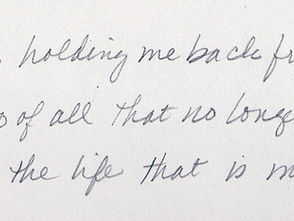 holding me back fr
of all that no longe
the life that is m